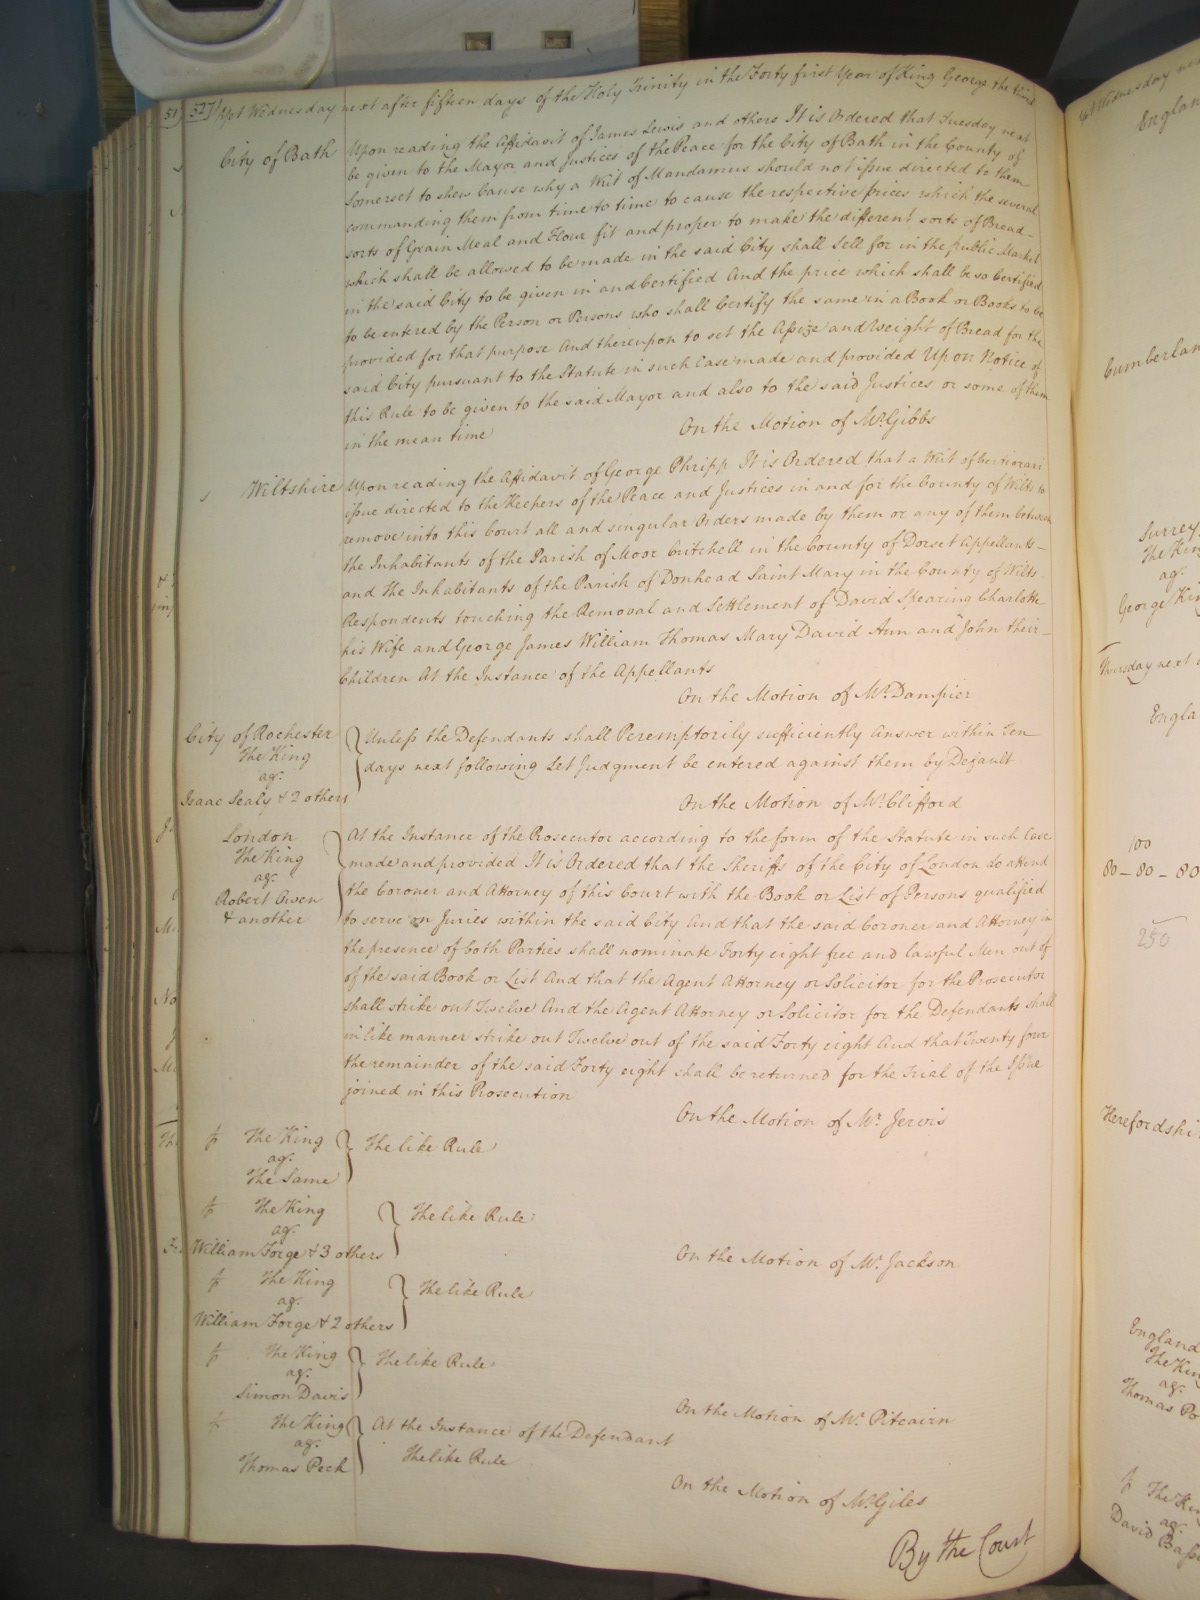 51 527 Yet Wednesday next after fifteen days of the Holy Trinity in the Forty first Year of King George the third
City of Bath
Upon reading the Affidavit of James Lewis and others It is Ordered that Tuesday next
be given to the Mayor and Justices of the Peace for the City of Bath in the County of
Somerset to shew Cause why a Writ of Mandamus should not issue directed to them
commanding them from time to time to cause the respective prices which the several
sorts of Grain Meal and Flour fit and proper to make the different sorts of Bread
which shall be allowed to be made in the said City shall sell for in the public Market
in the said City to be given in and Certified And the price which shall be so Certified
to be entered by the Person or Persons who shall Certify the same in a Book or Books to be
provided for that purpose And thereupon to set the Assize and Weight of Bread for the
said City pursuant to the Statute in such Case made and provided Upon Notice of
this Rule to be given to the said Mayor and also to the said Justices or some of them
in the mean time
On the Motion of Mr. Gibbs
Wiltshire
Upon reading the Affidavit of George Phripp It is Ordered that a Writ of Certiorari
issue directed to the Keepers of the Peace and Justices in and for the County of Wilts to
remove into this Court all and singular Orders made by them or any of them between
the Inhabitants of the Parish of Moor Critchell in the County of Dorset Appellants
and the Inhabitants of the Parish of Donhead Saint Mary in the County of Wilts
Respondents touching the Removal and Settlement of David Spearing Charlotte
his Wife and George James William Thomas Mary David Ann and John their
Children At the Instance of the Appellants
On the Motion of Mr. Dampier
City of Rochester
The King
agt.
Isaac Sealy & 2 others
Unless the Defendants shall Peremptorily sufficiently Answer within Ten
days next following Let Judgment be entered against them by Default
On the Motion of Mr. Clifford
London
The King
agt.
Robert Owen
& another
At the Instance of the Prosecutor according to the form of the Statute in such Case
made and provided It is Ordered that the Sheriffs of the City of London do attend
the Coroner and Attorney of this Court with the Book or List of Persons qualified
to serve on Juries within the said City And that the said Coroner and Attorney in
the presence of both Parties shall nominate Forty eight free and lawful Men out of
of the said Book or List And that the Agent Attorney or Solicitor for the Prosecutor
shall strike out Twelve And the Agent Attorney or Solicitor for the Defendants shall
in like manner strike out Twelve out of the said Forty eight And that Twenty four
the remainder of the said Forty eight shall be returned for the Trial of the Issue
joined in this Prosecution
On the Motion of Mr. Jervis
The King
agt.
The Same
The like Rule
The King
agt.
William Forge & 3 others
The like Rule
On the Motion of Mr. Jackson
The King
agt.
William Forge & 2 others
The like Rule
The King
agt.
Simon Davis
The like Rule
On the Motion of Mr. Pitcairn
The King
agt.
Thomas Peck
At the Instance of the Defendant
The like Rule
On the Motion of Mr. Giles
By the Court
Yet Wednesday
Englan
Cumberlan
Surrey
The Kin
agt.
George Kin
Thursday next
Engla
100
80 - 80 - 80
250
Herefordshi
England
The Kin
agt.
Thomas Po
The Kin
agt.
David Bass